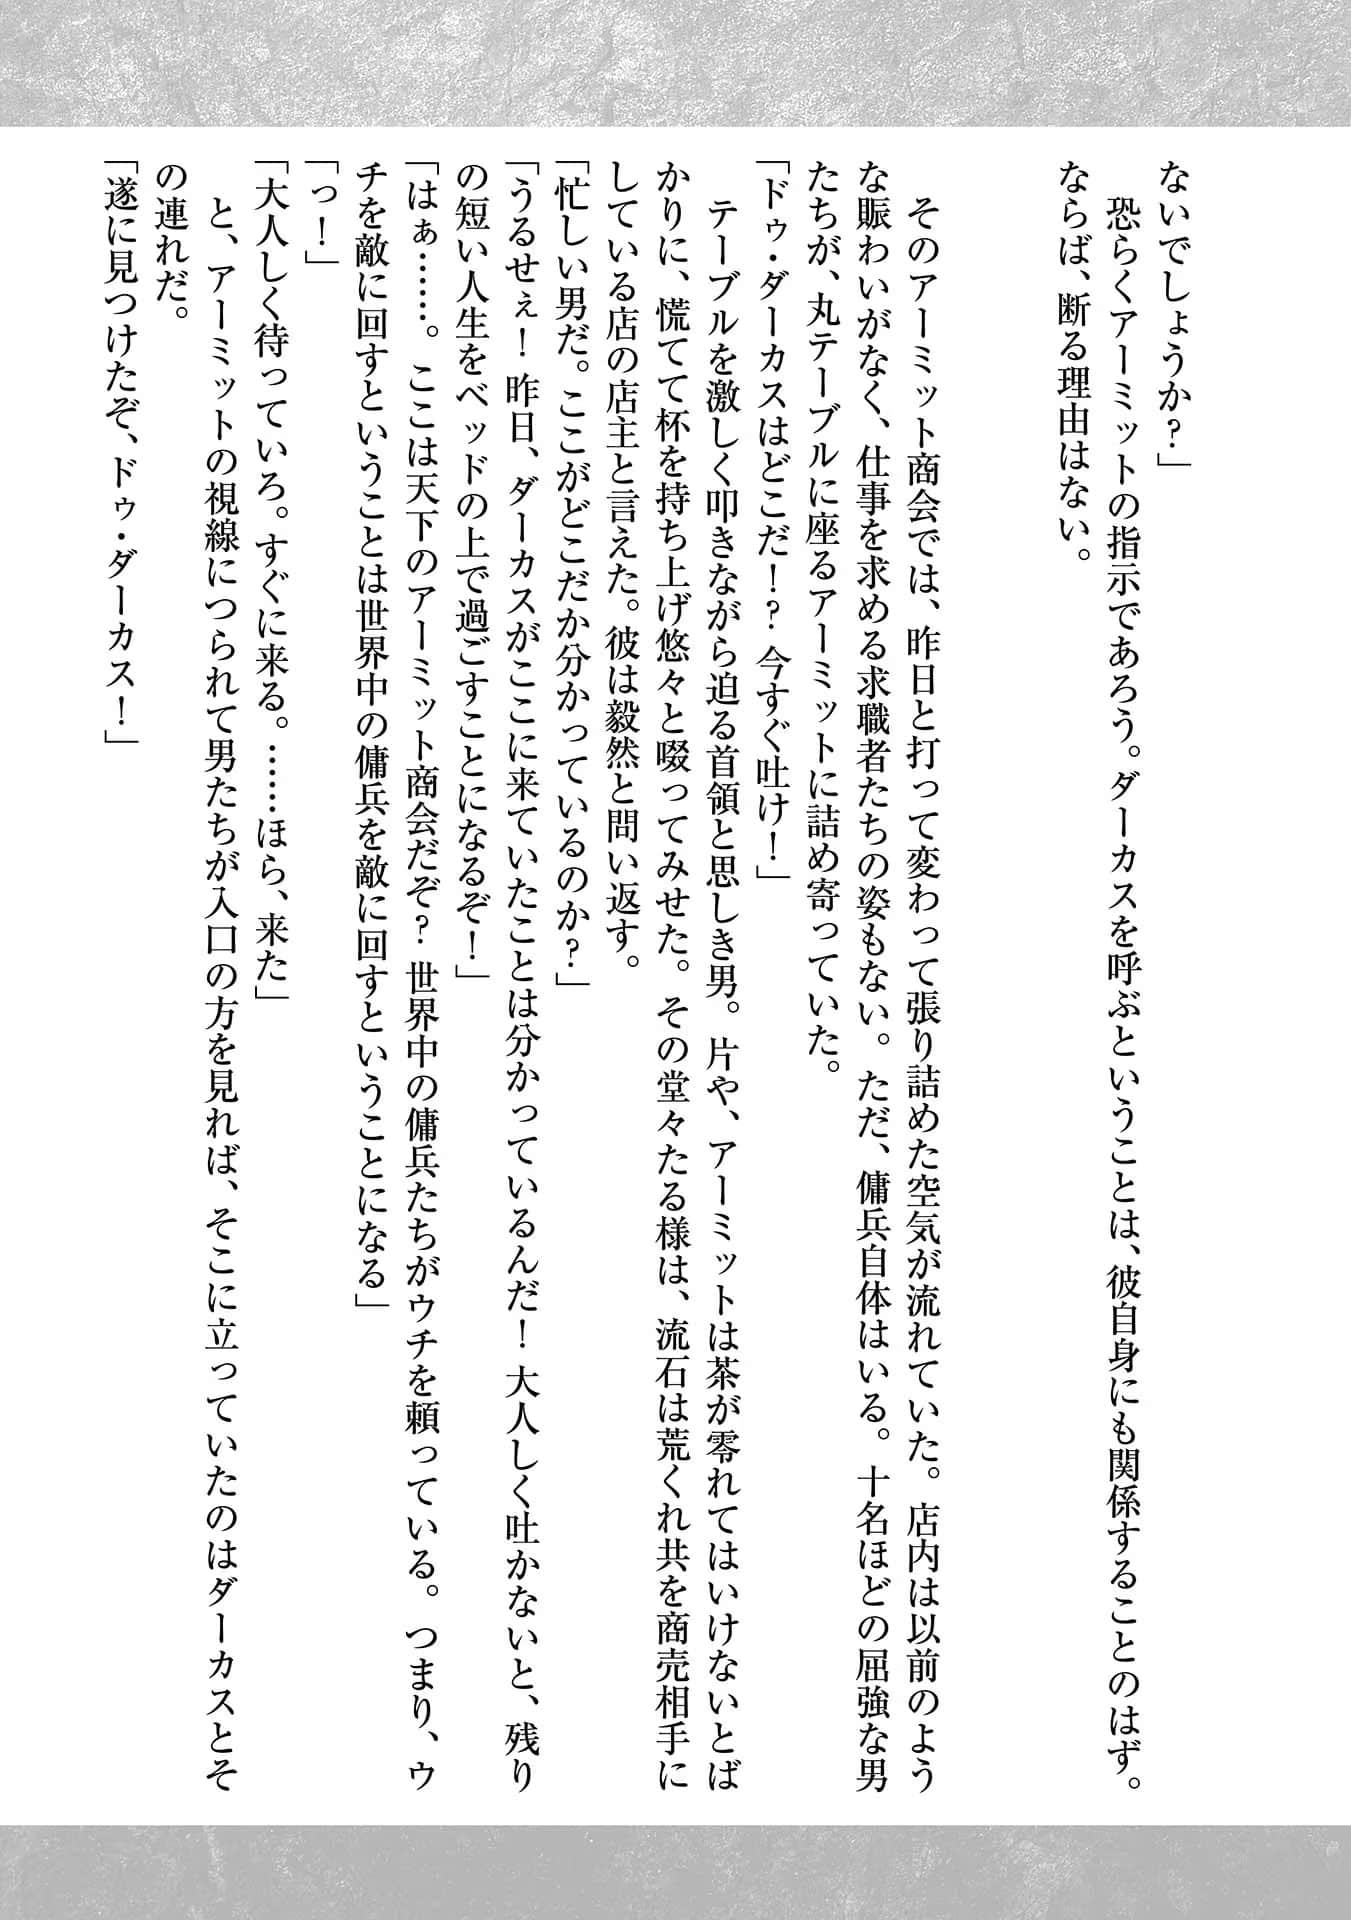 ないでしょうか？」
　恐らくアーミットの指示であろう。ダーカスを呼ぶということは、彼自身にも関係することのはず。
ならば、断る理由はない。
　そのアーミット商会では、昨日と打って変わって張り詰めた空気が流れていた。店内は以前のよう
な賑わいがなく、仕事を求める求職者たちの姿もない。ただ、傭兵自体はいる。十名ほどの屈強な男
たちが、丸テーブルに座るアーミットに詰め寄っていた。
「ドゥ・ダーカスはどこだ！？ 今すぐ吐け！」
　テーブルを激しく叩きながら迫る首領と思しき男。片や、アーミットは茶が零れてはいけないとば
かりに、慌てて杯を持ち上げ悠々と啜ってみせた。その堂々たる様は、流石は荒くれ共を商売相手に
している店の店主と言えた。彼は毅然と問い返す。
「忙しい男だ。ここがどこだか分かっているのか？」
「うるせぇ！ 昨日、ダーカスがここに来ていたことは分かっているんだ！ 大人しく吐かないと、残り
の短い人生をベッドの上で過ごすことになるぞ！」
「はぁ……。ここは天下のアーミット商会だぞ？ 世界中の傭兵たちがウチを頼っている。つまり、ウ
チを敵に回すということは世界中の傭兵を敵に回すということになる」
「っ！」
「大人しく待っていろ。すぐに来る。……ほら、来た」
　と、アーミットの視線につられて男たちが入口の方を見れば、そこに立っていたのはダーカスとそ
の連れだ。
「遂に見つけたぞ、ドゥ・ダーカス！」